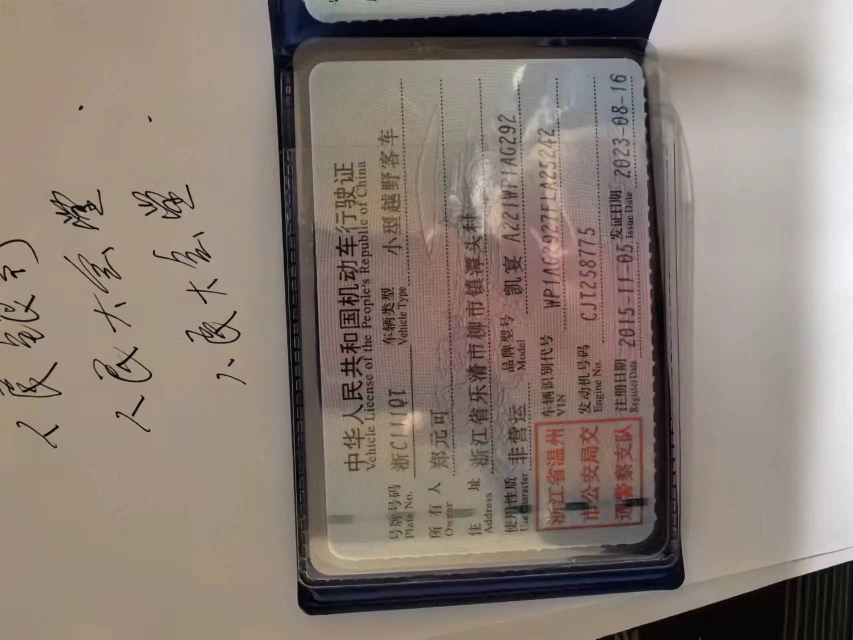 人民银行
人民大会堂
人民大会堂
中华人民共和国机动车行驶证
Vehicle License of the People's Republic of China
号牌号码 浙C111QT 车辆类型 小型越野客车
Plate No. Vehicle Type
所有人 郑元可
Owner
住址 浙江省乐清市柳市镇潭头村
Address
使用性质 非营运 品牌型号 凯宴 A221WP1AG292
Use Character Model
浙江省温州
市公安局交
通警察支队
车辆识别代号
VIN
发动机号码 CJT258775
Engine No.
注册日期 2015-11-05 发证日期 2023-08-16
Register Date Issue Date